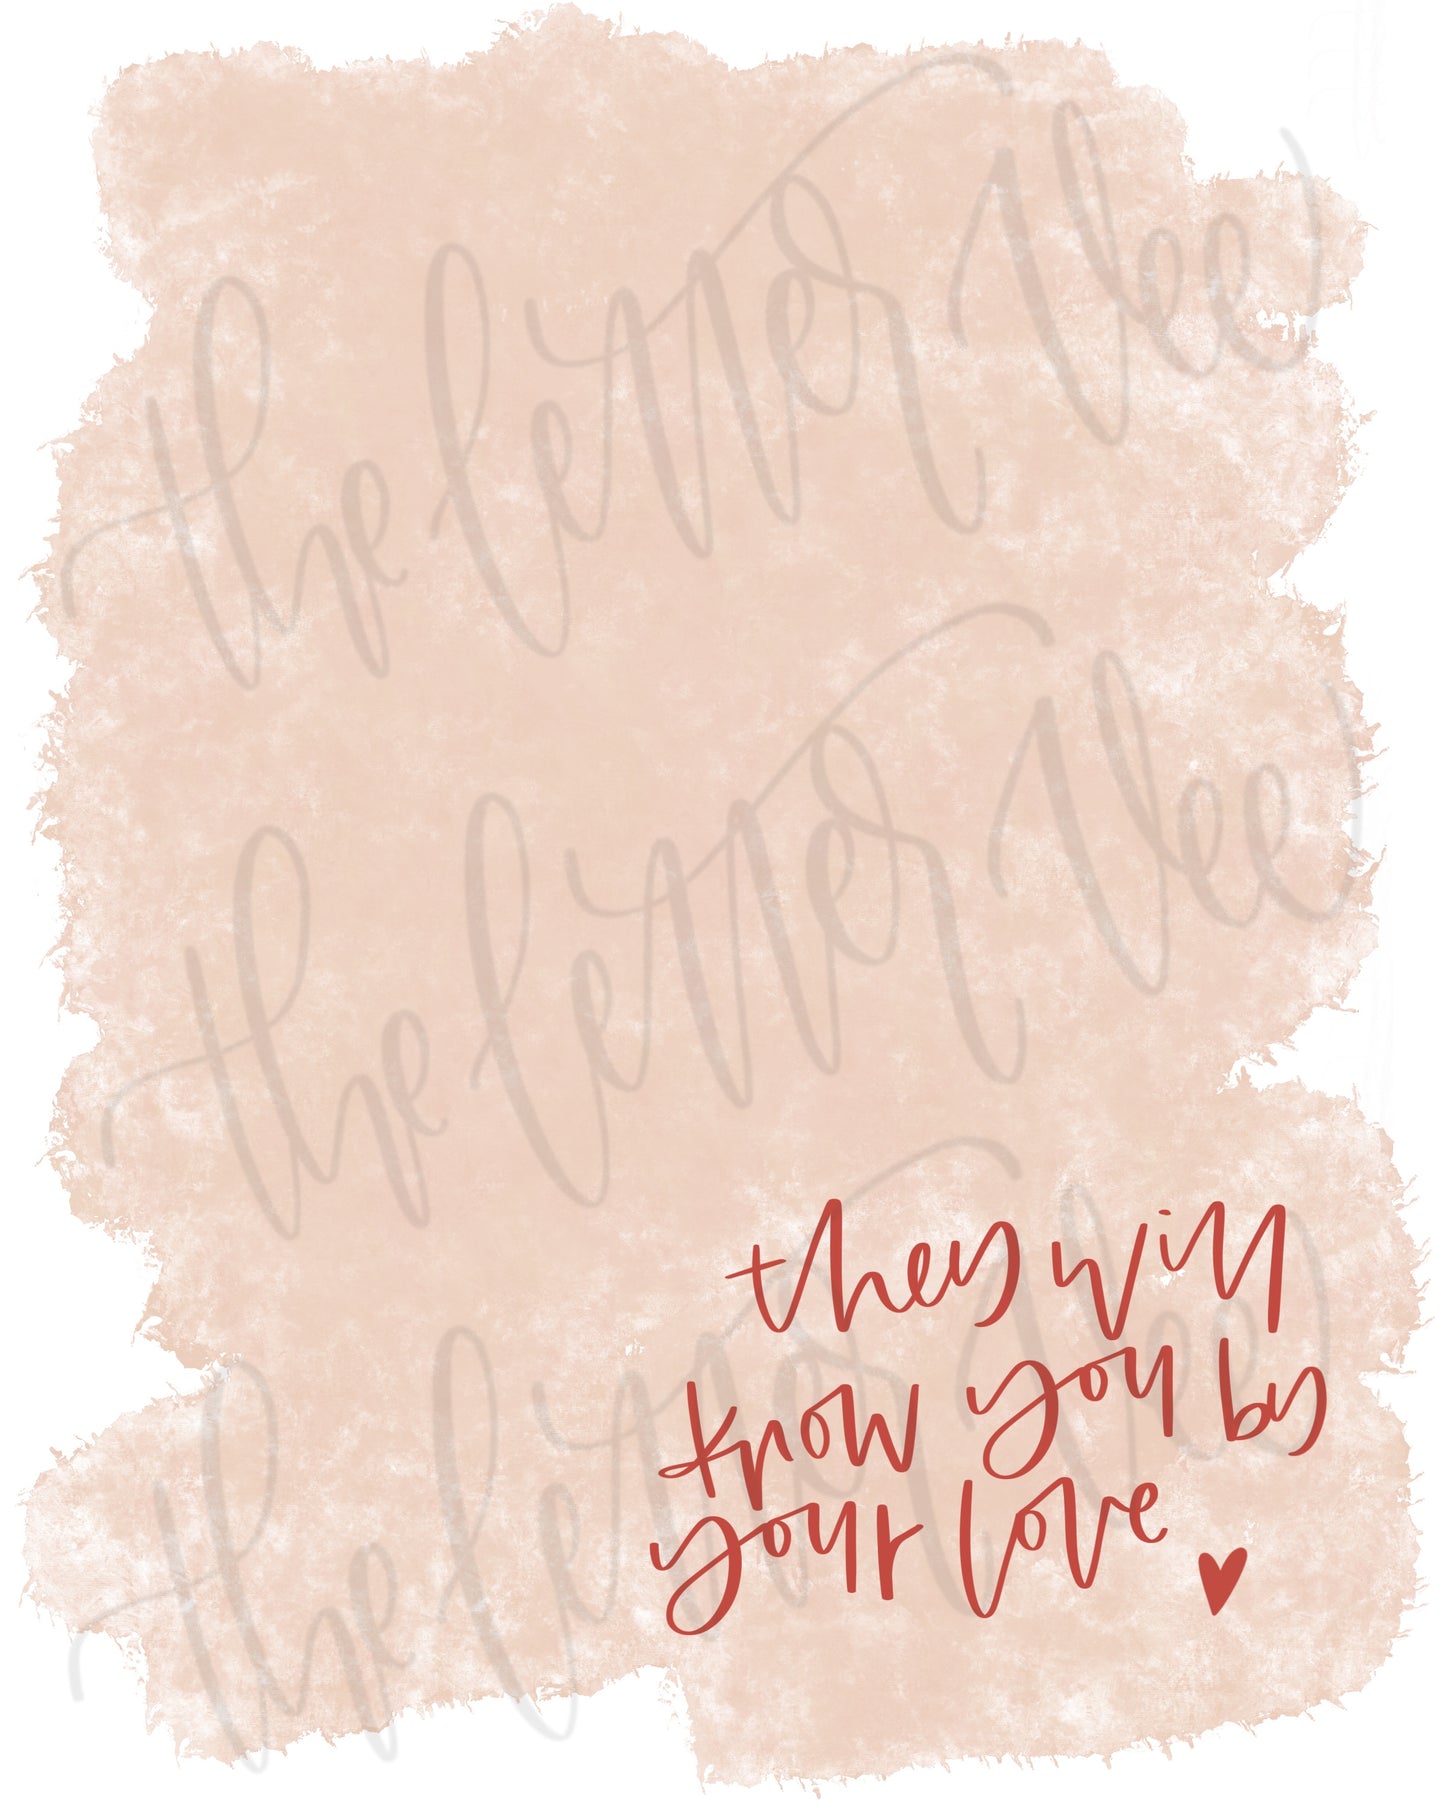 the letter Vee
the letter Vee
the letter Vee
they will
know you by
your love